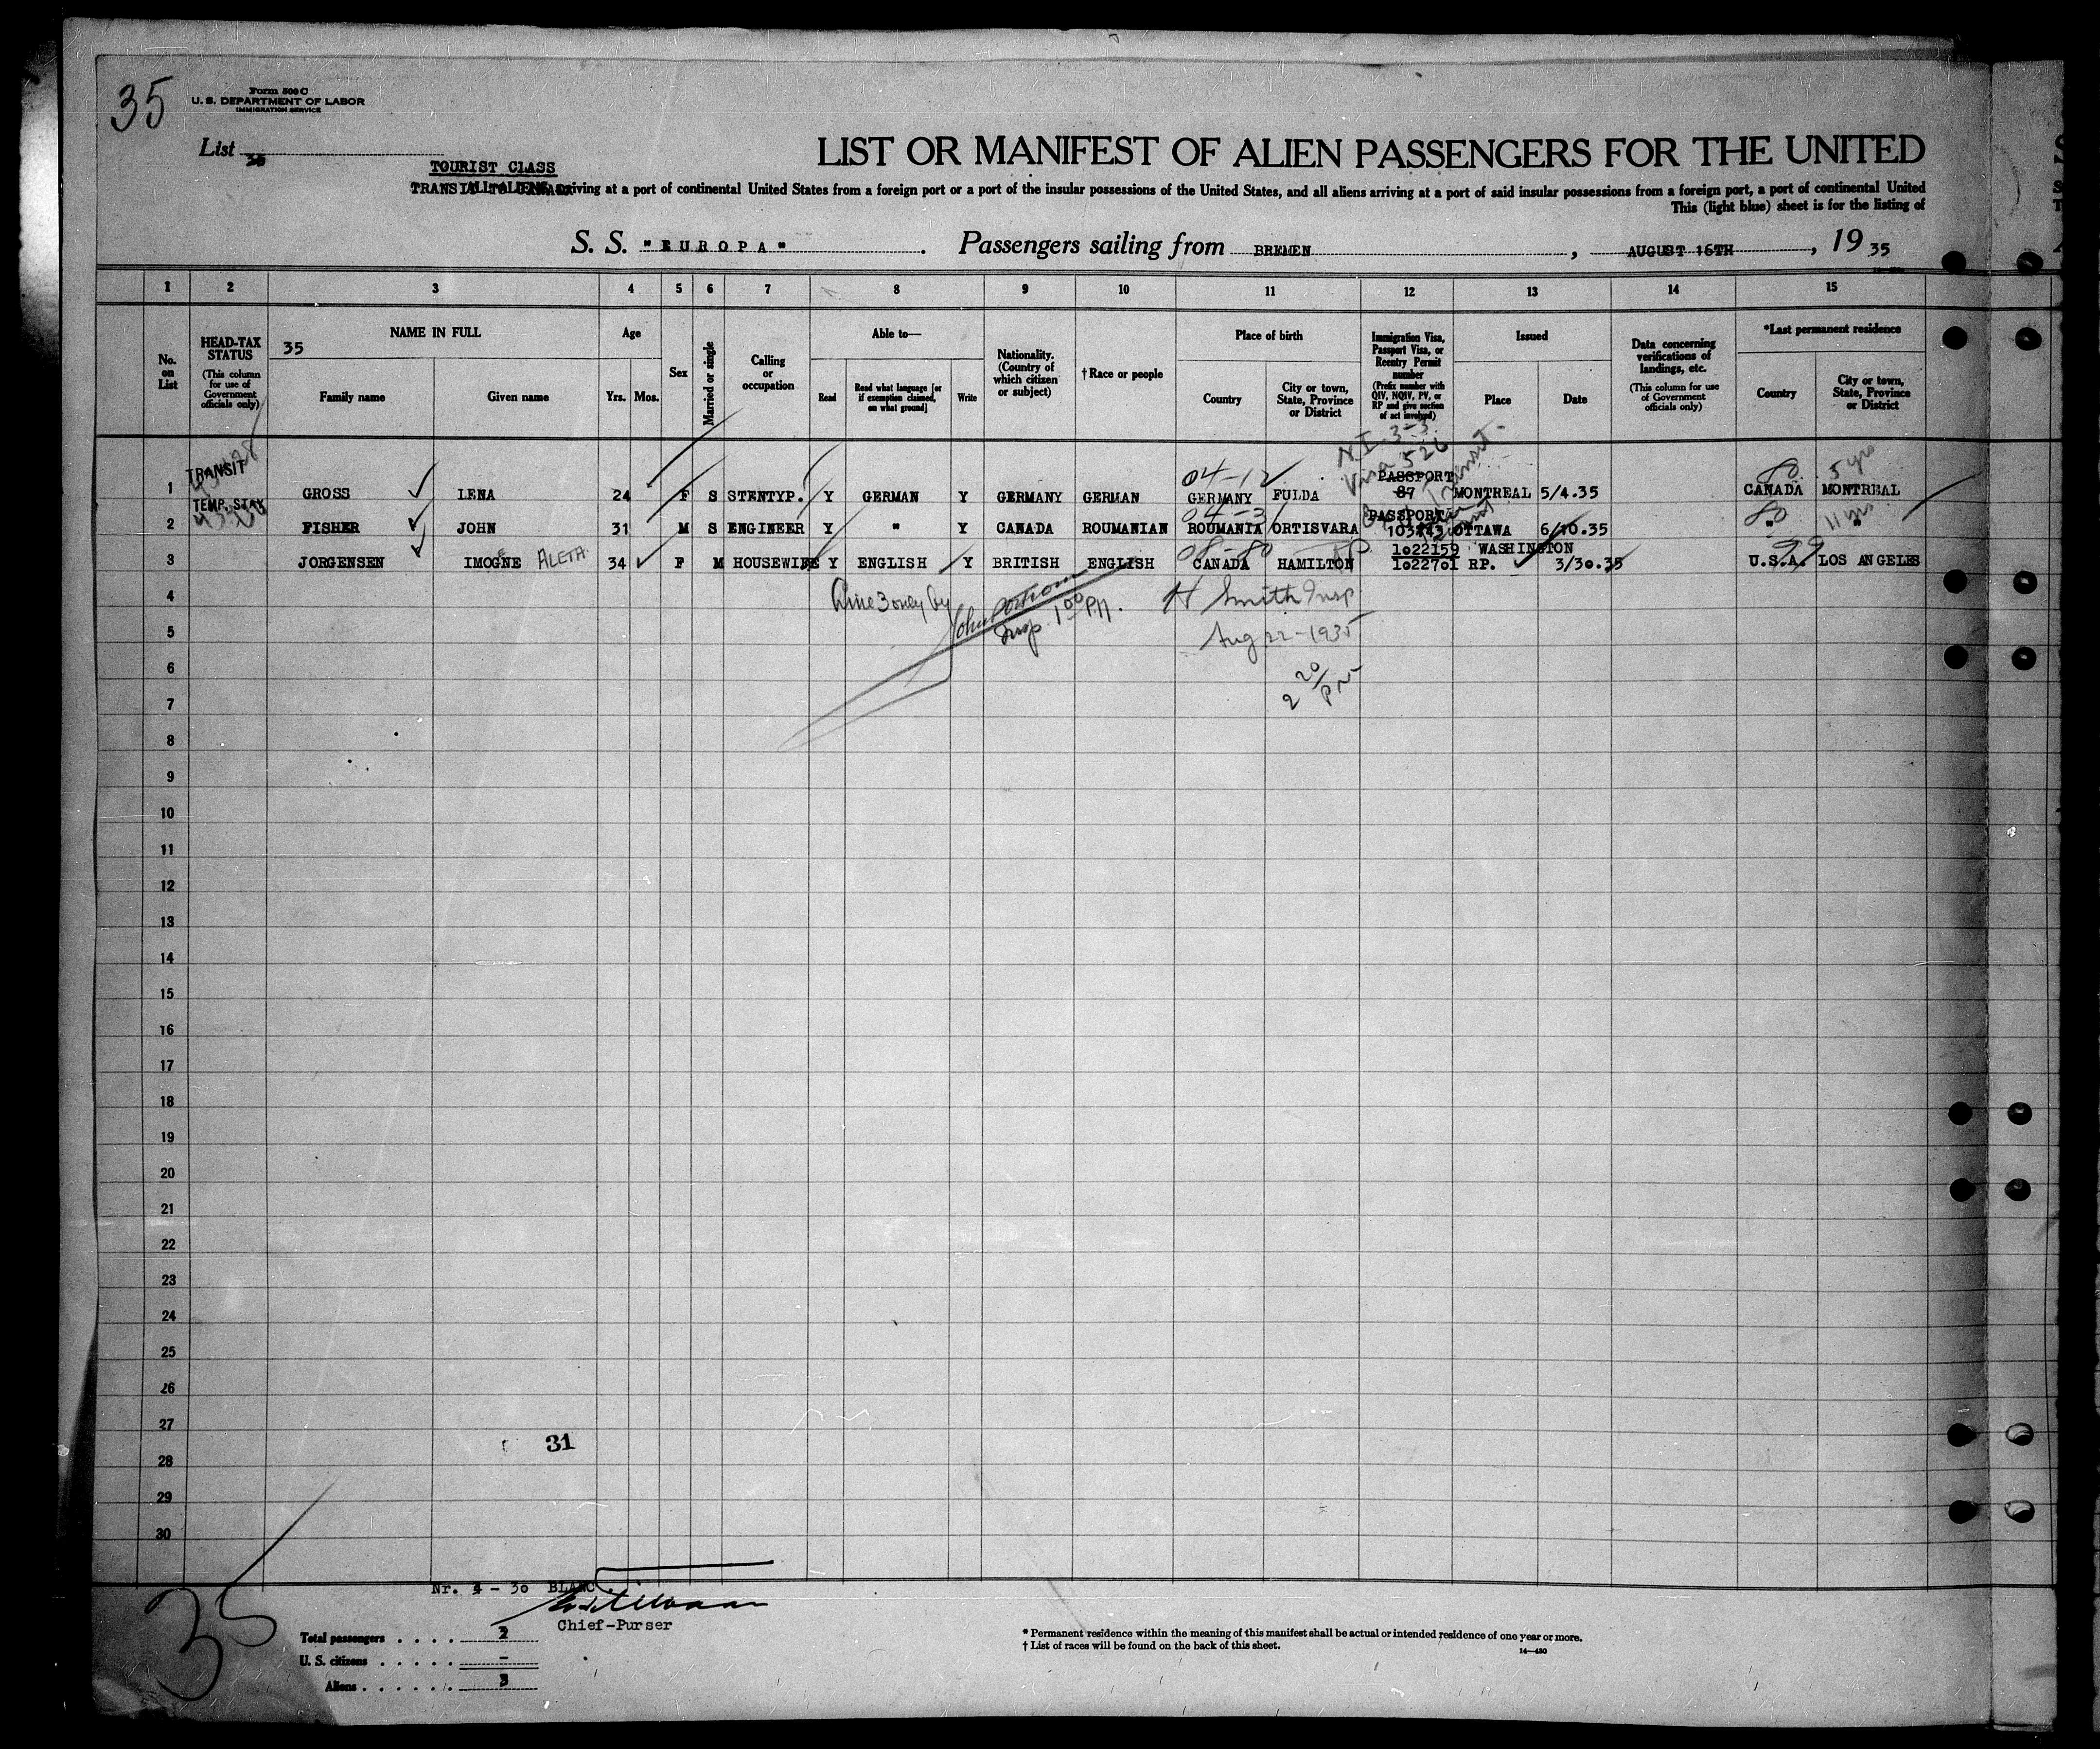 35
Form 500 C
U. S. DEPARTMENT OF LABOR
IMMIGRATION SERVICE
List 35
LIST OR MANIFEST OF ALIEN PASSENGERS FOR THE UNITED
TOURIST CLASS
arriving at a port of continental United States from a foreign port or a port of the insular possessions of the United States, and all aliens arriving at a port of said insular possessions from a foreign port, a port of continental United
This (light blue) sheet is for the listing of
S. S. "EUROPA" . Passengers sailing from BREMEN , AUGUST 16TH , 19 35
1 2 3 4 5 6 7 8 9 10 11 12 13 14 15
No. on List
HEAD-TAX STATUS
(This column for use of Government officials only)
35
NAME IN FULL
Family name
Given name
Age
Yrs. Mos.
Sex
Married or single
Calling or occupation
Able to—
Read
Read what language [or if exemption claimed, on what ground]
Write
Nationality. (Country of which citizen or subject)
† Race or people
Place of birth
Country
City or town, State, Province or District
Immigration Visa, Passport Visa, or Reentry Permit number
(Prefix number with QIV, NQIV, PV, or RP and give section of act involved)
Issued
Place
Date
Data concerning verifications of landings, etc.
(This column for use of Government officials only)
*Last permanent residence
Country
City or town, State, Province or District
N.I. 3-3
Visa 526
TRANSIT
04-12
PASSPORT
80
5 yrs
1 GROSS LENA 24 F S STENTYP. Y GERMAN Y GERMANY GERMAN GERMANY FULDA 87 MONTREAL 5/4.35 CANADA MONTREAL
TEMP. STAY
04-3
PASSPORT
80
11 yrs
2 FISHER JOHN 31 M S ENGINEER Y " Y CANADA ROUMANIAN ROUMANIA ORTISVARA OTTAWA 6/10.35 " "
08-80
RP
1022159 WASHINGTON
99
3 JORGENSEN IMOGNE ALETA 34 F M HOUSEWIFE Y ENGLISH Y BRITISH ENGLISH CANADA HAMILTON 1022701 RP. 3/30.35 U.S.A. LOS ANGELES
4
Line 3 only by
Insp. 1 00 P.M.
H Smith Insp
5
Aug 22-1935
6
2 20/PM
7
8
9
10
11
12
13
14
15
16
17
18
19
20
21
22
23
24
25
26
27
31
28
29
30
Nr. 4 - 30 BLANC.
Chief-Purser
35
Total passengers . . . . 3
U. S. citizens . . . . . -
Aliens . . . . . . 3
* Permanent residence within the meaning of this manifest shall be actual or intended residence of one year or more.
† List of races will be found on the back of this sheet.
14—430